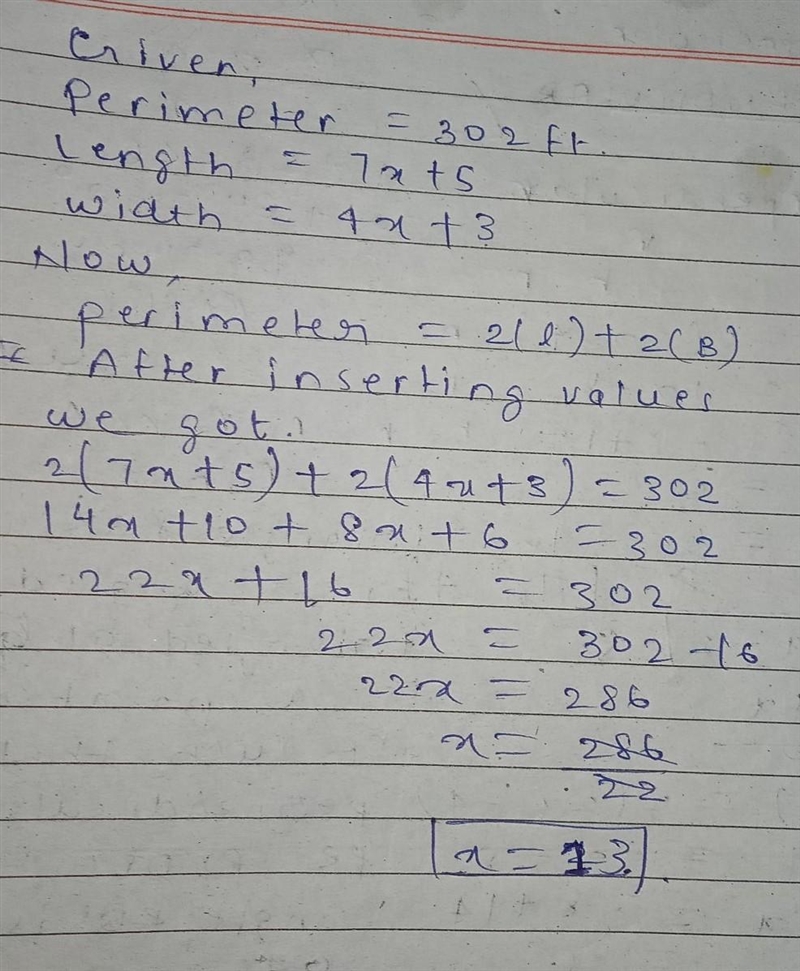 Given,
Perimeter = 302 ft.
Length = 7x+5
Width = 4x+3
Now,
perimeter = 2(l)+2(B)
After inserting values
we got.
2(7x+5)+2(4x+3)=302
14x+10+8x+6 =302
22x+16 = 302
22x = 302-16
22x = 286
x= 286
22
x=13.